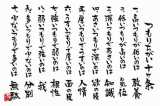 つもりちがい十ヶ条
一、高いつもりで低いのが 教養
二、低いつもりで高いのが 気位
三、深いつもりで浅いのが 知識
四、浅いつもりで深いのが 欲の皮
五、厚いつもりで薄いのが 人情
六、薄いつもりで厚いのが 面の皮
七、強いつもりで弱いのが 根性
八、弱いつもりで強いのが 我
九、多いつもりで少いのが 分別
十、少いつもりで多いのが 無駄